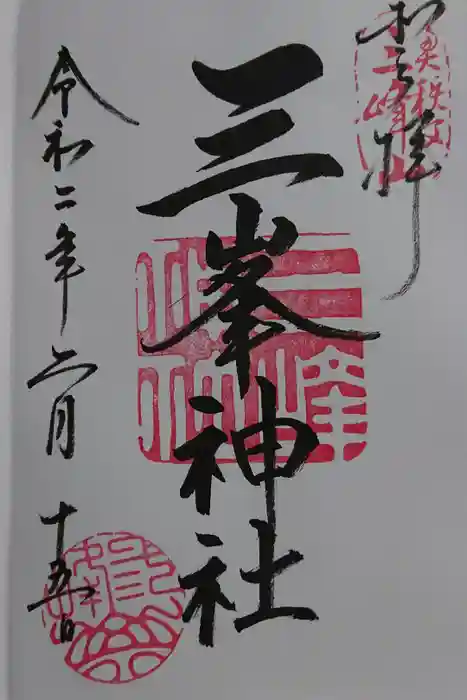 奉拝
奥秩父
三峰山
三峯神社
令和二年六月十五日